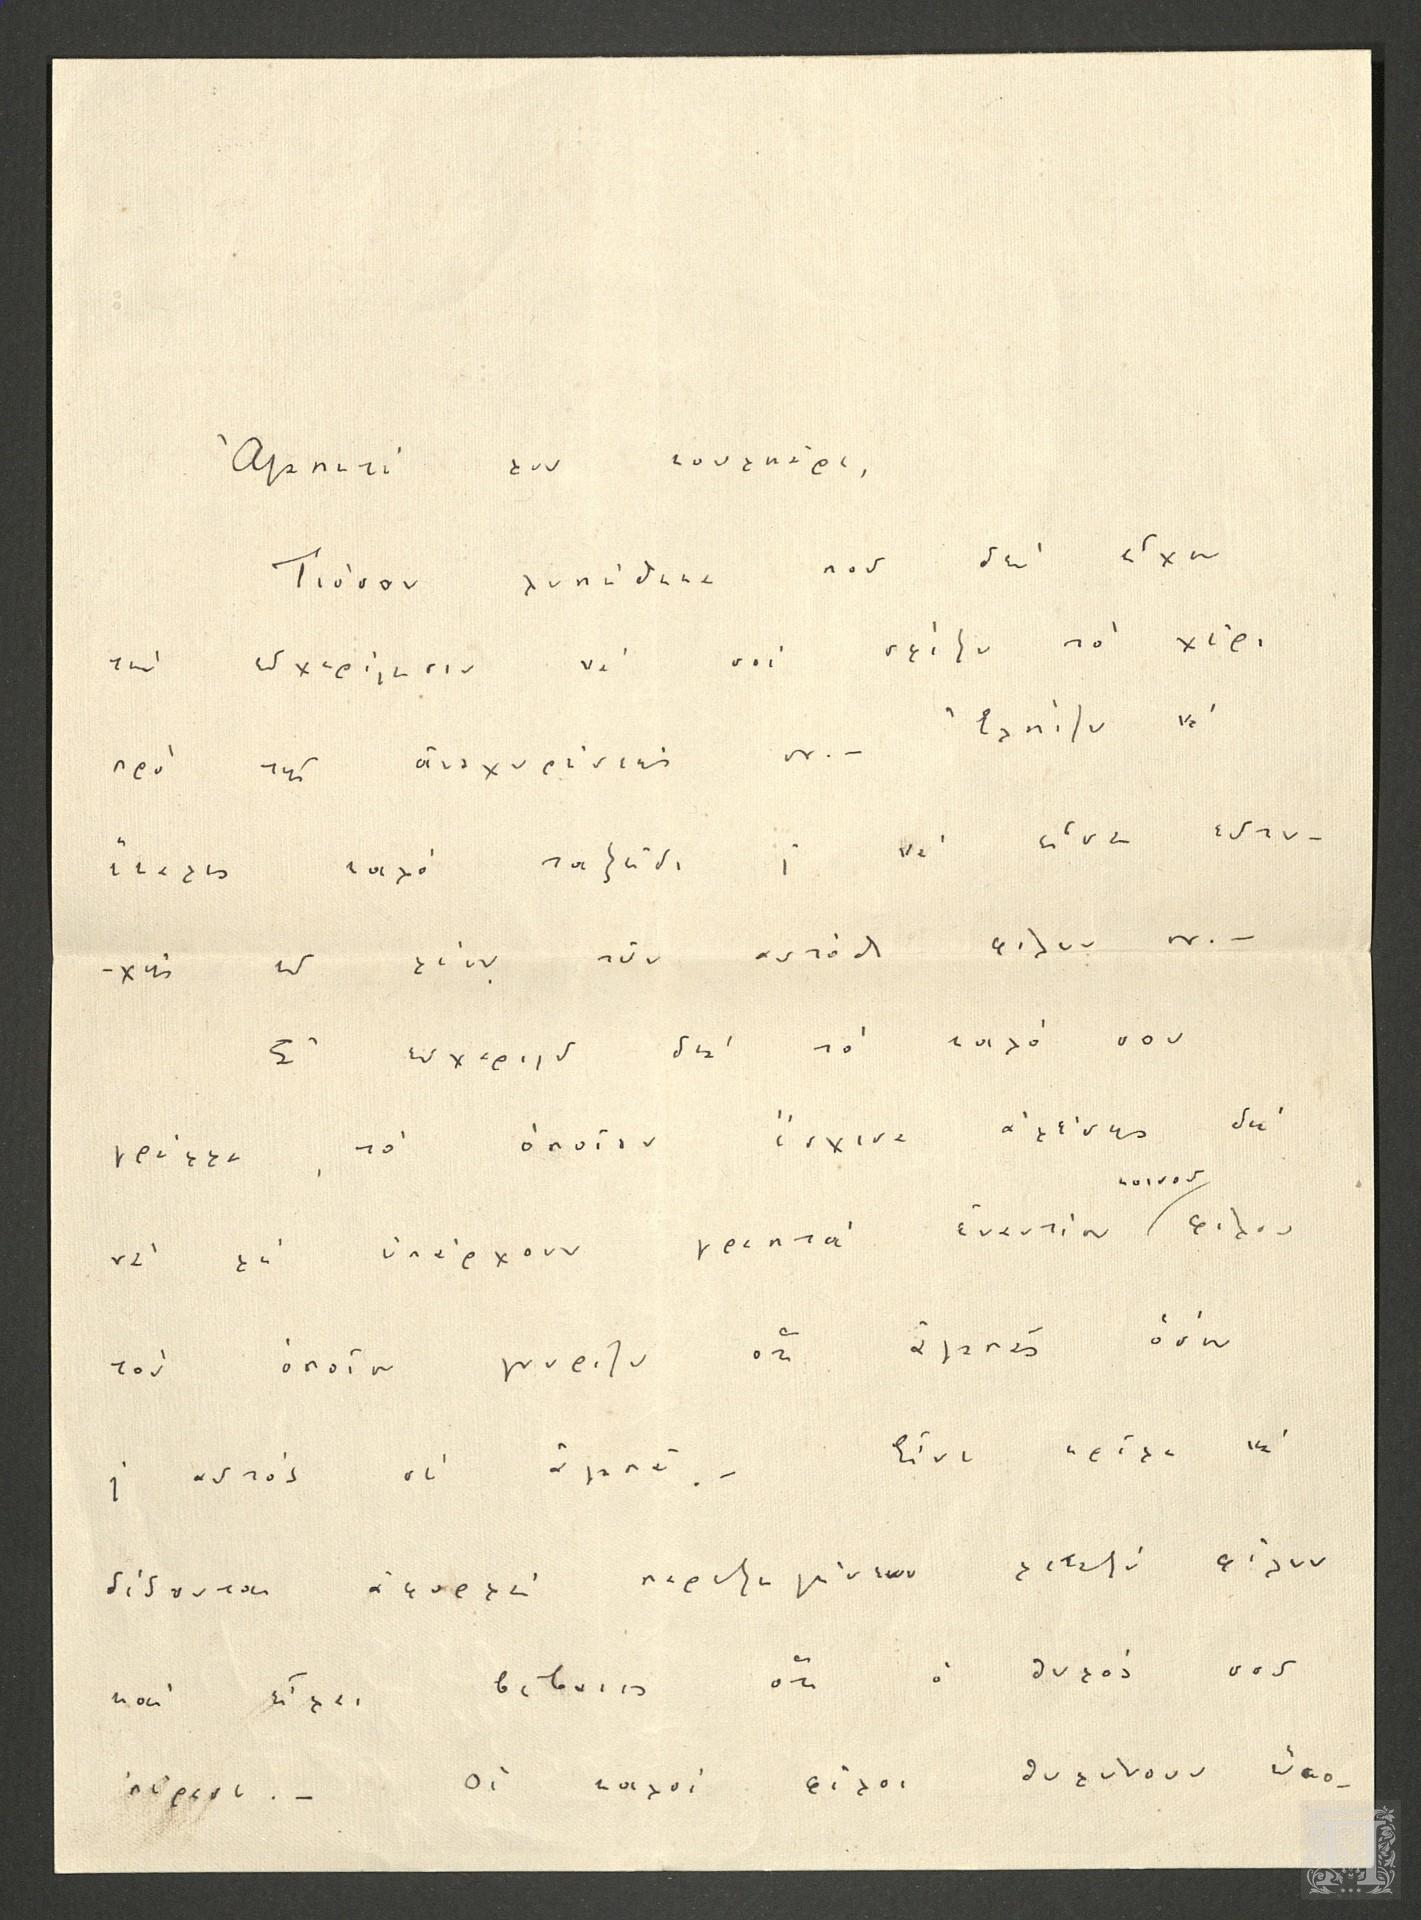 Ἀγαπητέ μου κουμπάρε,
Πόσον λυπήθηκα ποῦ δὲν εἶχα
τὴν εὐχαρίστησιν νὰ σοῦ σφίξω τὸ χέρι
πρὸ τῆς ἀναχωρήσεώς σου.— Ἐλπίζω νὰ
ἔκαμες καλὸ ταξεῖδι καὶ νὰ εἶσαι εὐτυ-
-χὴς ἐν μέσῳ τῶν αὐτόθι φίλων σου.—
Σ' εὐχαριστῶ διὰ τὸ καλό σου
γράμμα, τὸ ὁποῖον ἔσχισα ἀμέσως διὰ
νὰ μὴ ὑπάρχουν γραπτὰ ἐναντίον κοινοῦ φίλου
τὸν ὁποῖον γνωρίζω ὅτι ἀγαπᾷς ὅσον
καὶ αὐτὸς σὲ ἀγαπᾷ.— Εἶνε κρῖμα νὰ
δίδονται ἀφορμαὶ παρεξηγήσεων μεταξὺ φίλων
καὶ εἶμαι βέβαιος ὅτι ὁ θυμός σου
πέρασε.— Οἱ καλοὶ φίλοι θυμώνουν